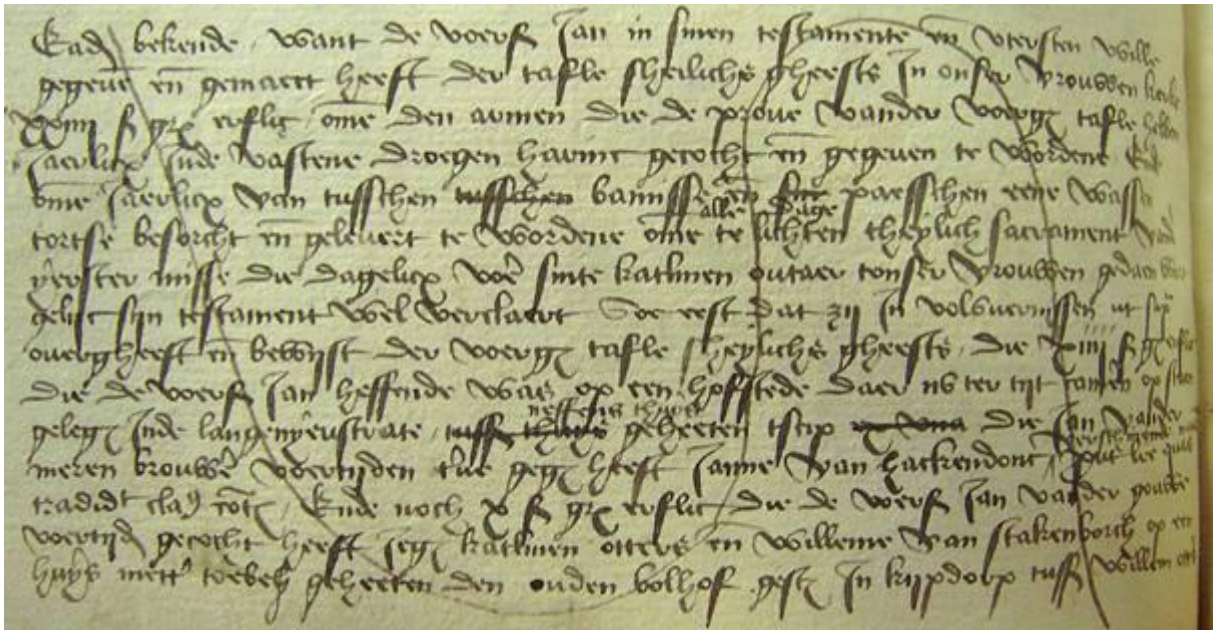 Ead bekende want de voers Jan in sinen testamente en utersten wille
gegeve en gemaect heeft der tafle sheilichs gheests In onser vrouwen kerke
xviij s gr erflic ome den armen die de prove vander voerg tafle hebben
Jaerlicx Inde vastene droegen harinc gecocht en gegeven te wordene
ome Jaerlicx van tusschen tusschen bamisse en paesschen eene wassen
alle dage
tortse besorcht en gelevert te wordene ome te lichten theylich sacrament
yerster misse die dagelicx voer sinte katlinen outaer tonser vrouwen gedaen
gelijc sijn testament wel verclaert Soe eest dat zij In volvuernissen
overgheeft en bewijst der voerg tafle sheylichs gheests die xviij s gr
die de voers Jan heffende was op een hofstede daer nu ter tijt op staen
neffens thuys
geleg Inde langenyeustrate tuss thuys geheeten tscip die Jan vander
meren brouwer voertijden geg heeft Janne van hackendonc
tradidt Ende noch x s gr erflic die de voers Jan vander gouwe
voertijd gecocht heeft Jeg katlinen otters en willeme van stakenborch op een
huys mett toebeh geheeten den ouden bolhof gest In kijpdorp tuss willem